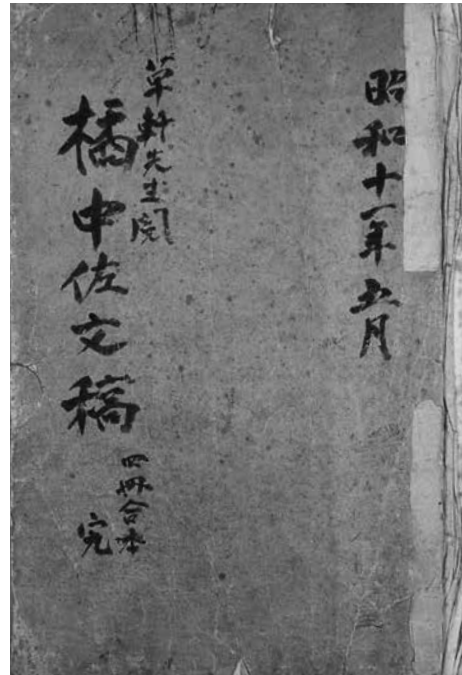 昭和十一年五月
草軒先生閲
橘中佐文稿
四冊合本
完